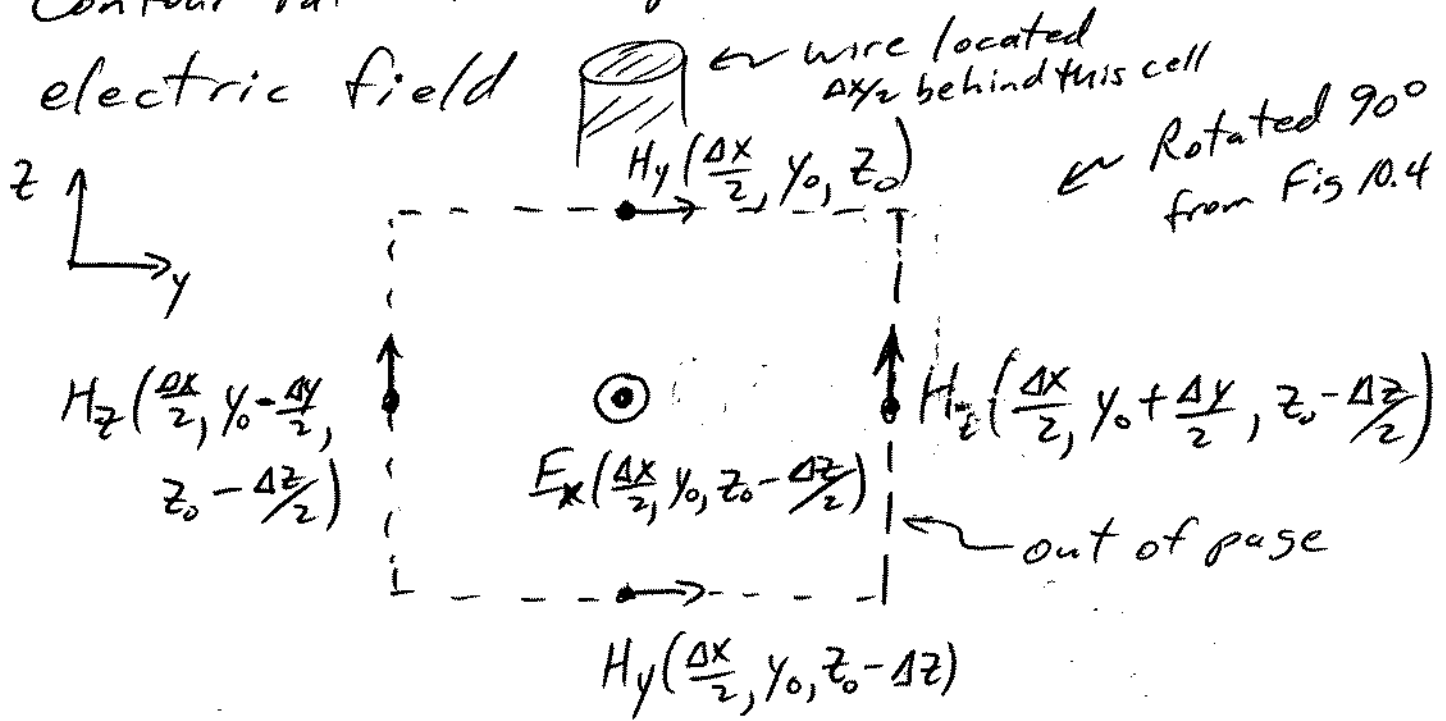 Contour
electric field
wire located
Δx/2 behind this cell
Rotated 90°
from Fig 10.4
z
y
Hy(Δx/2, y₀, z₀)
Hz(Δx/2, y₀-Δy/2,
z₀-Δz/2)
Ex(Δx/2, y₀, z₀-Δz/2)
Hz(Δx/2, y₀+Δy/2, z₀-Δz/2)
out of page
Hy(Δx/2, y₀, z₀-Δz)